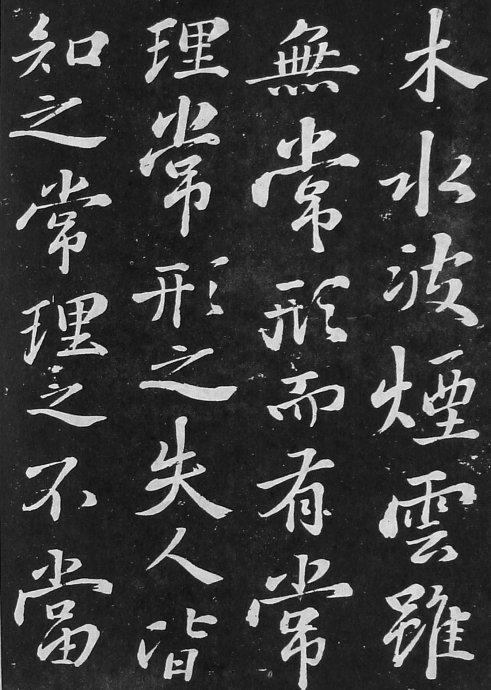 木水波煙雲雖
無常形而有常
理常形之失人皆
知之常理之不當